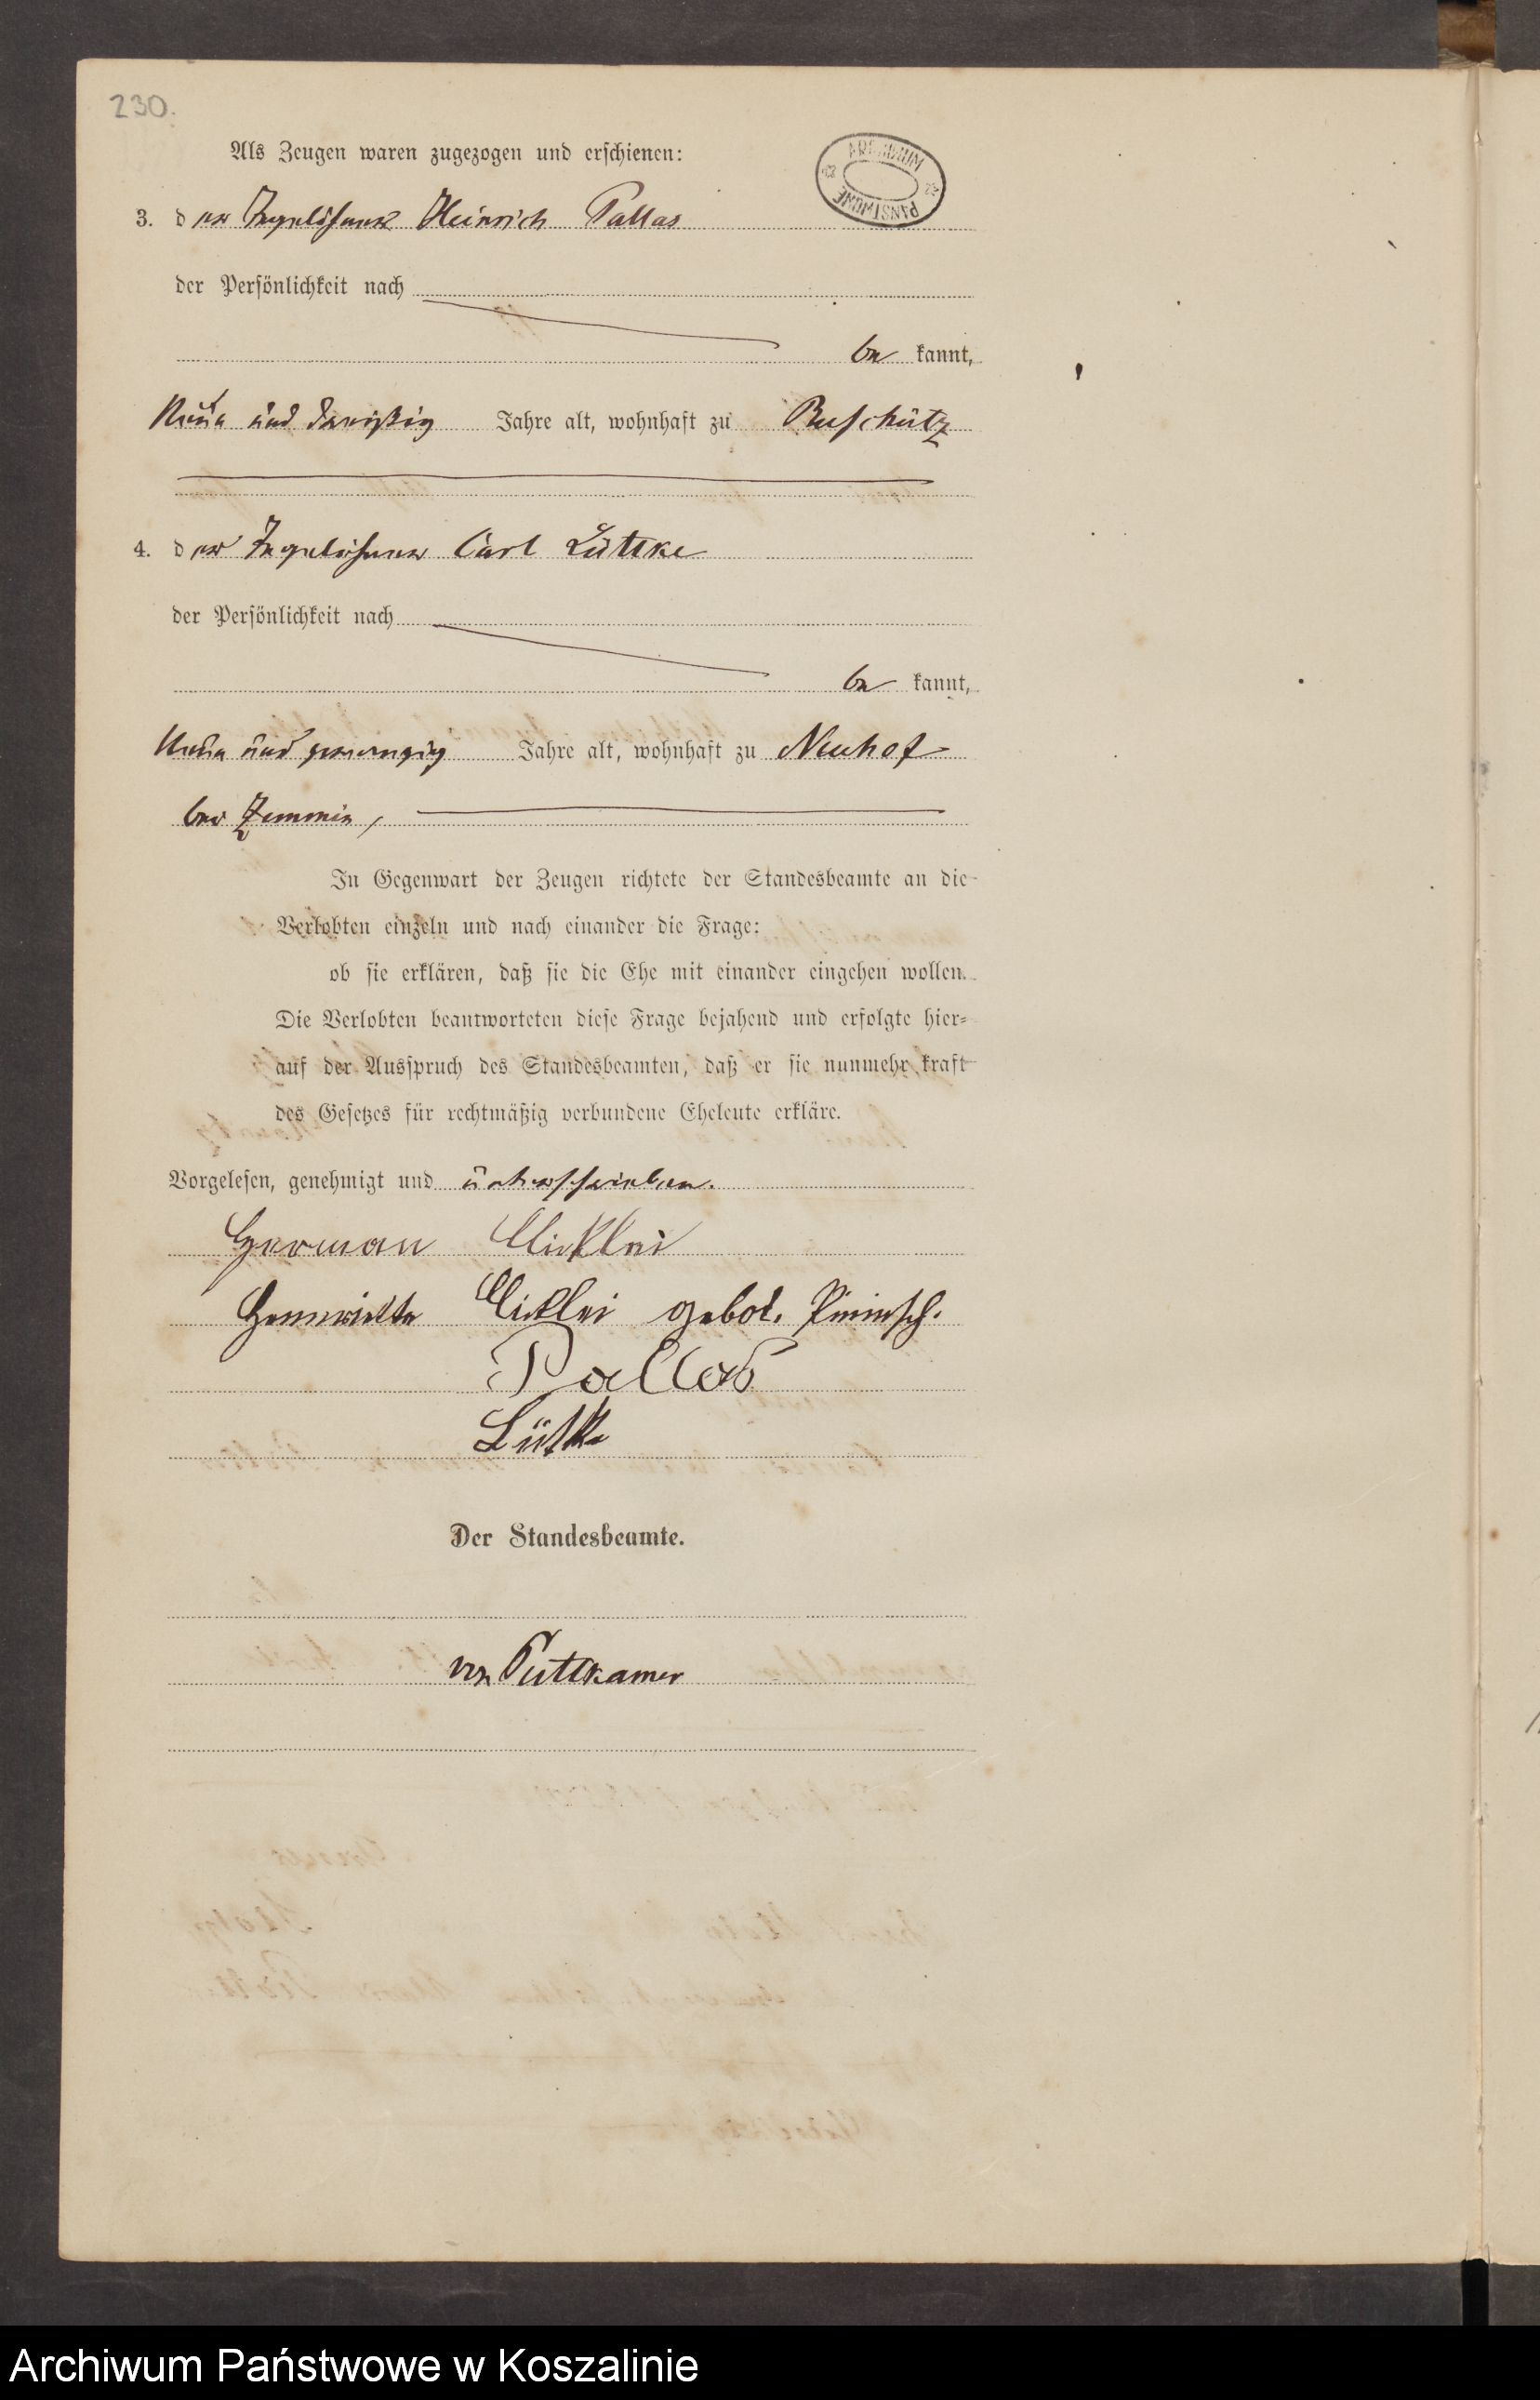 230.
Als Zeugen waren zugezogen und erschienen:
ARCHIWUM
PAŃSTWOWE
3. der Tagelöhner Heinrich Pallas
der Persönlichkeit nach
be kannt,
Neun und dreißig Jahre alt, wohnhaft zu Buschütz
4. der Tagelöhner Carl Lüttke
der Persönlichkeit nach
be kannt,
Neun und zwanzig Jahre alt, wohnhaft zu Neuhof
bei Zemmin,
In Gegenwart der Zeugen richtete der Standesbeamte an die
Verlobten einzeln und nach einander die Frage:
ob sie erklären, daß sie die Ehe mit einander eingehen wollen.
Die Verlobten beantworteten diese Frage bejahend und erfolgte hier=
auf der Ausspruch des Standesbeamten, daß er sie nunmehr kraft
des Gesetzes für rechtmäßig verbundene Eheleute erkläre.
Vorgelesen, genehmigt und unterschrieben.
Herman
Hennriette
Pallas
Lütke
Der Standesbeamte.
von Puttkamer
Archiwum Państwowe w Koszalinie